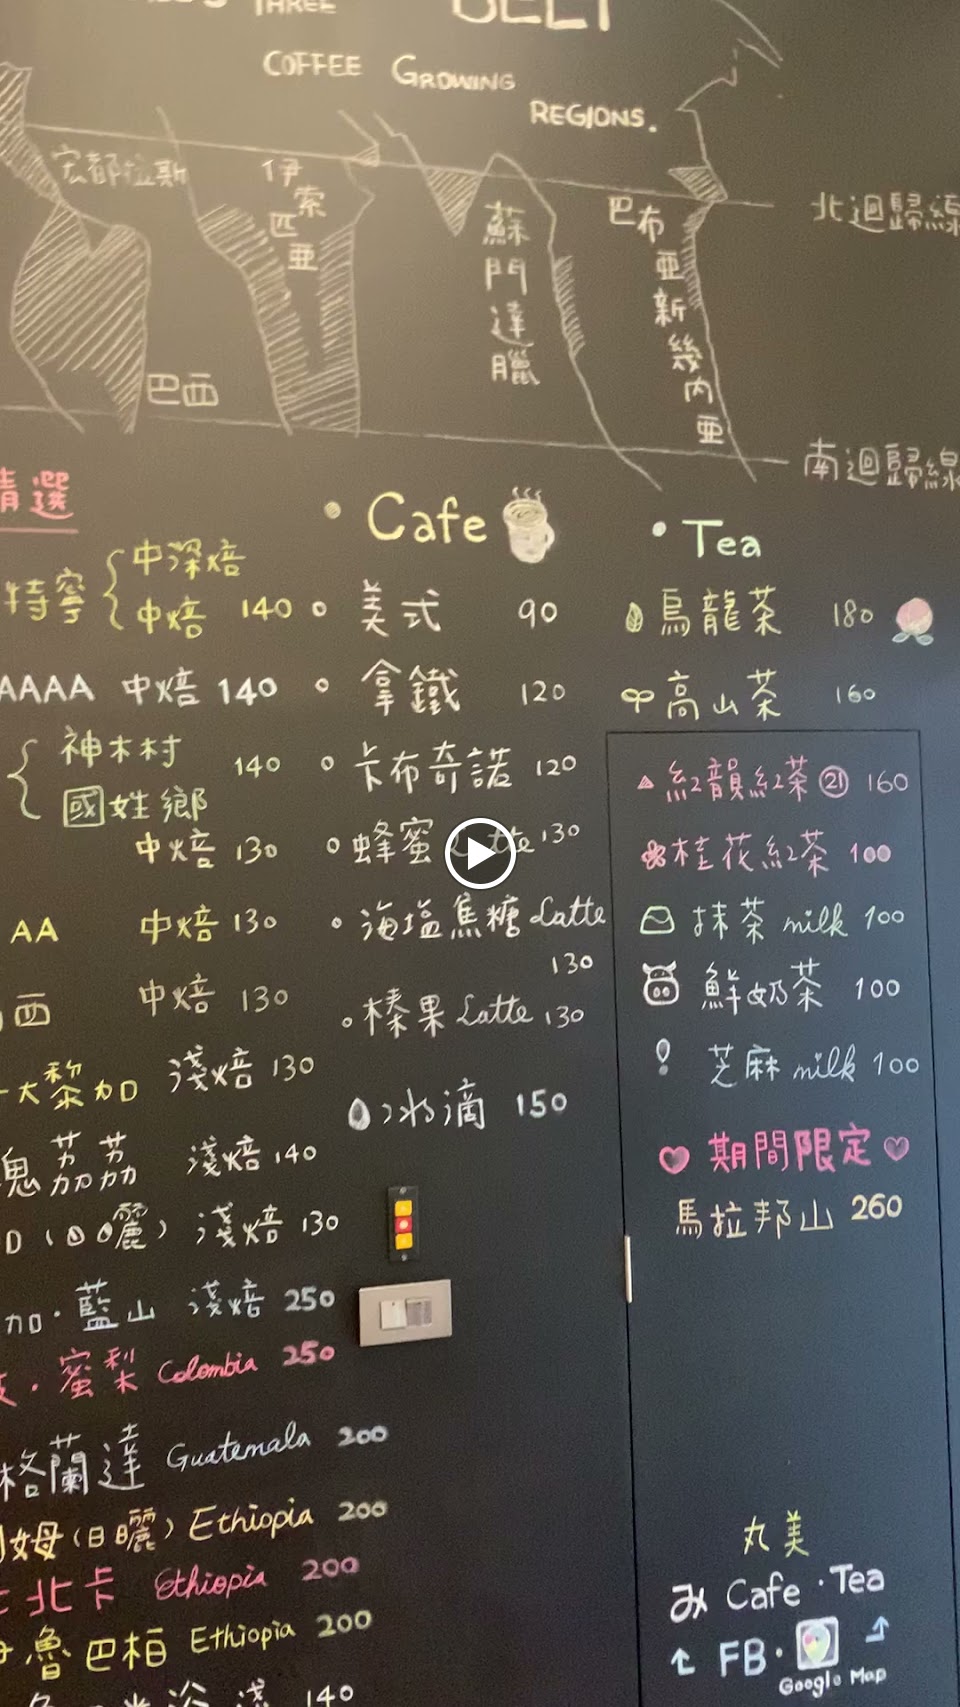 THREE BELT
COFFEE GROWING
REGIONS.
宏都拉斯
伊索匹亜
蘇門達臘
巴布亜新幾內亜
北迴歸線
巴西
南迴歸線
精選
中深焙
特寧 中焙 140
AAAA 中焙 140
神木村
國姓鄉 140
中焙 130
AA 中焙 130
西 中焙 130
大黎加 淺焙 130
瑰 茄茄 淺焙 140
日曬) 淺焙 130
加·藍山 淺焙 250
·蜜梨 Colombia 250
格蘭達 Guatemala 200
姆(日曬) Ethiopia 200
北卡 Ethiopia 200
魯巴柏 Ethiopia 200
淺 140
• Cafe
美式 90
拿鐵 120
卡布奇諾 120
蜂蜜 Latte 130
海塩焦糖 Latte
130
榛果 Latte 130
冰滴 150
• Tea
烏龍茶 180
高山茶 160
紅韻紅茶 ㉑ 160
桂花紅茶 100
抹茶 milk 100
鮮奶茶 100
芝麻 milk 100
♡ 期間限定 ♡
馬拉邦山 260
丸美
み Cafe · Tea
↑ FB · ↑
Google Map